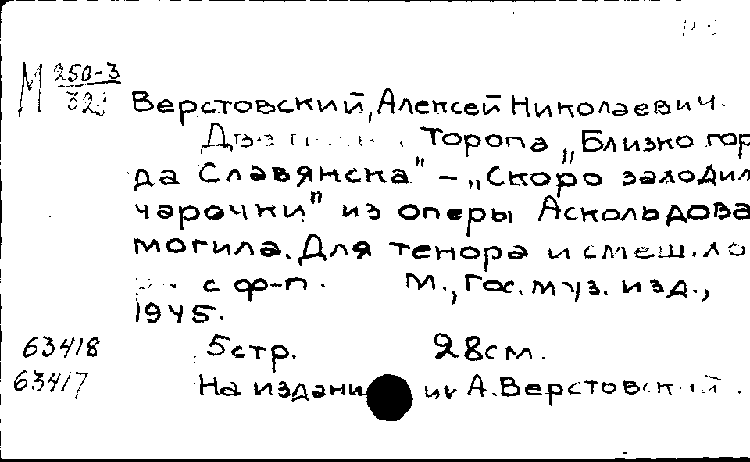 М 250-3
32
Верстовский, Алексей Николаевич.
Два Торопа „Близко гор
да Славянска" – „Скоро заходил
чарочки" из оперы Аскольдова
могила. Для тенора и смеш. хо
с ф-п. М., Гос. муз. изд.,
1945.
63418 5 стр. 28 см.
63417 На издани А. Верстовский.